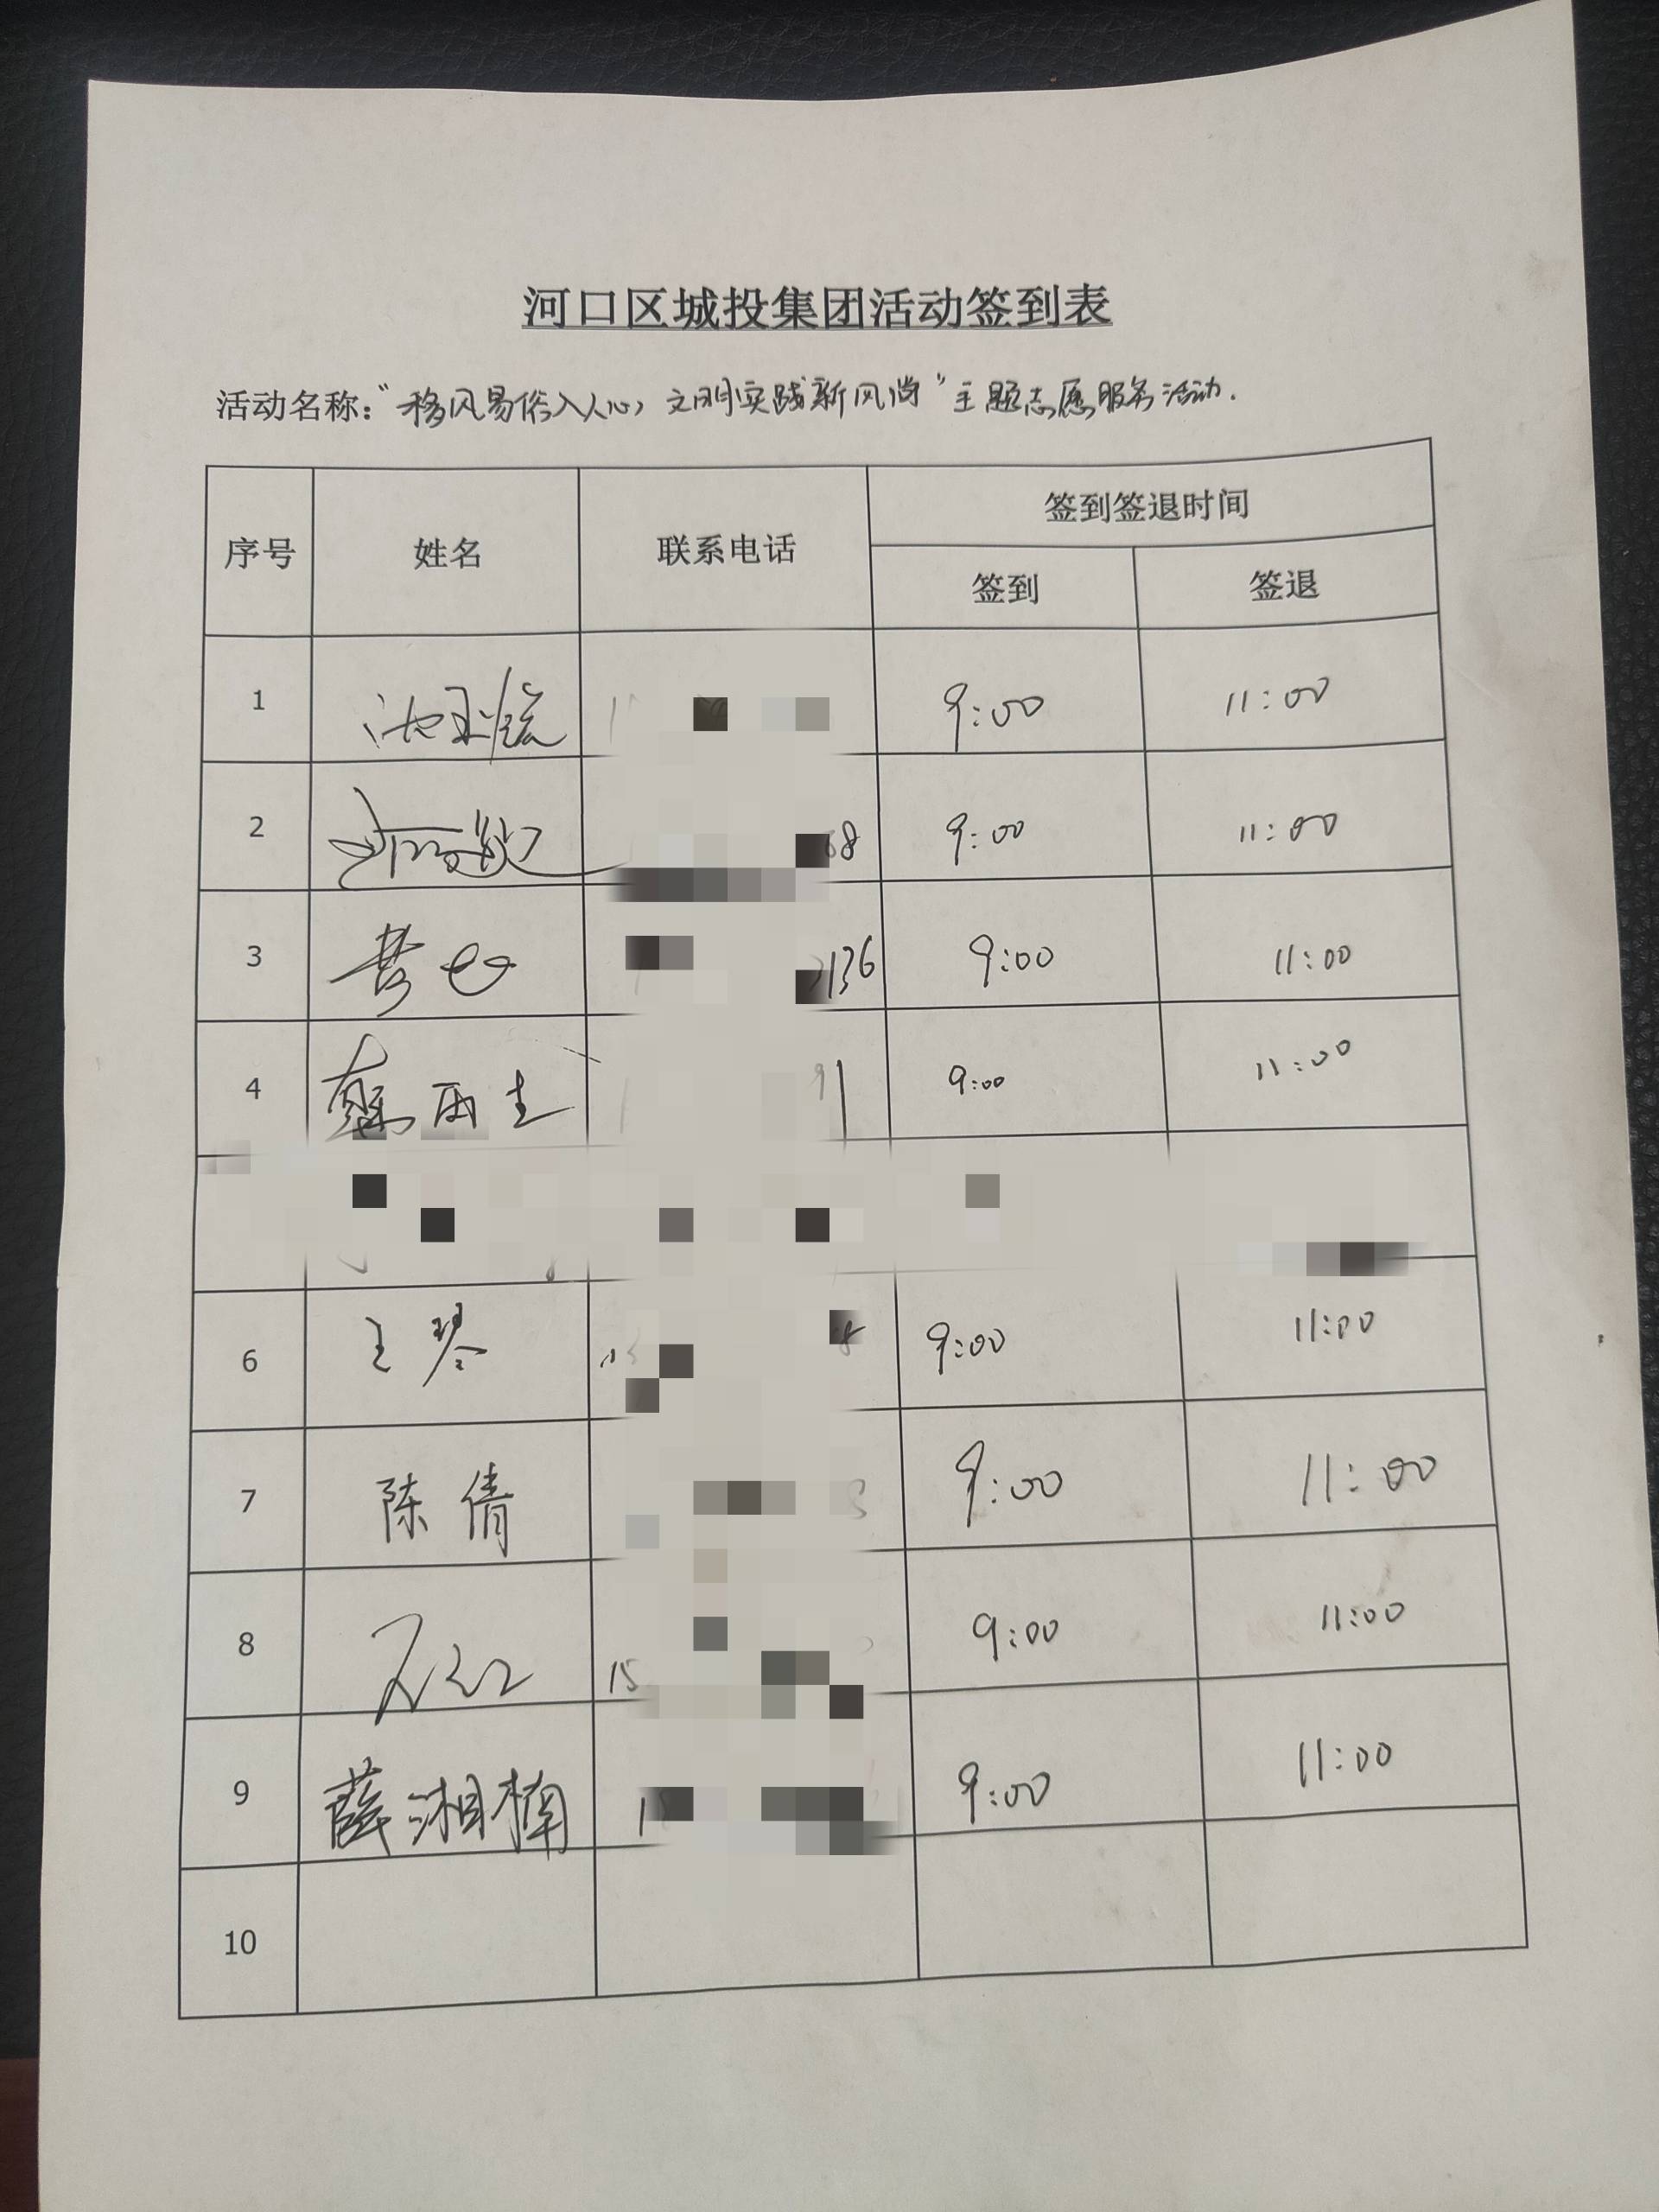 河口区城投集团活动签到表
活动名称：“移风易俗入人心，文明实践新风尚”主题志愿服务活动.
序号 姓名 联系电话 签到签退时间
签到 签退
1 9:00 11:00
2 68 9:00 11:00
3 136 9:00 11:00
4 91 9:00 11:00
6 王琴 9:00 11:00
7 陈倩 9:00 11:00
8 15 9:00 11:00
9 薛湘楠 9:00 11:00
10